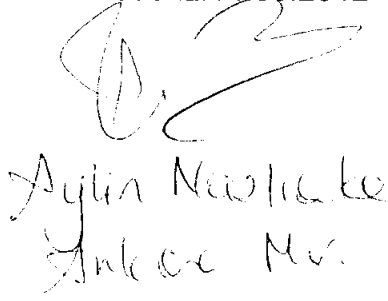 Aylin Nazlıaka
Ankara Mv.